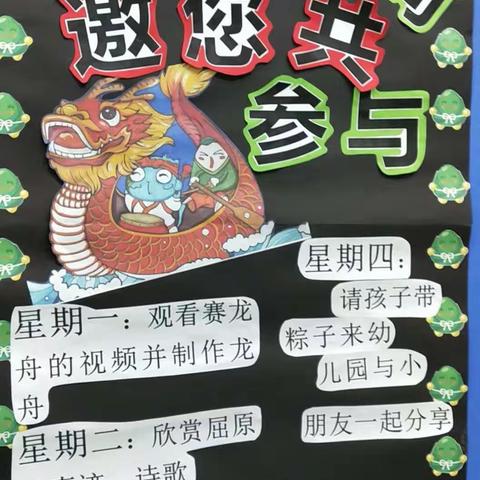 邀您共
参与
星期一：观看赛龙
舟的视频并制作龙
舟
星期二：欣赏屈原
诗歌
星期四：
请孩子带
粽子来幼
儿园与小
朋友一起分享